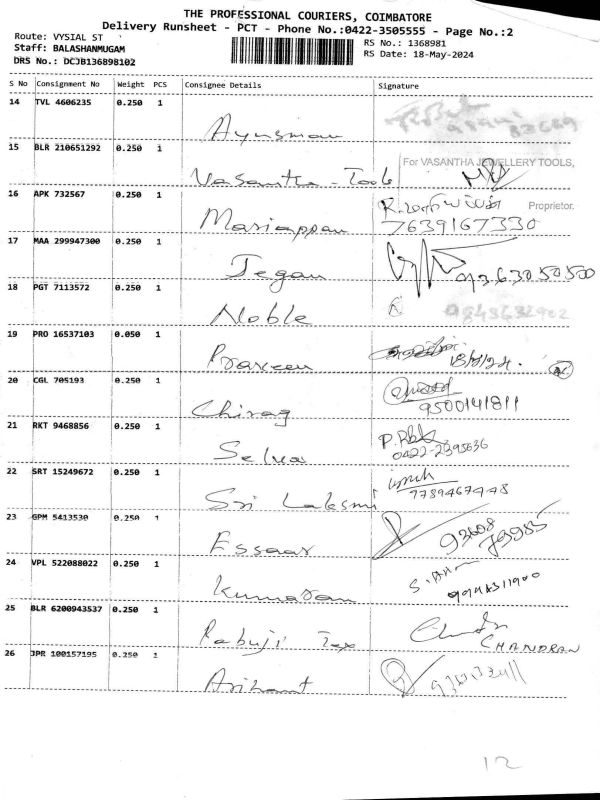 THE PROFESSIONAL COURIERS, COIMBATORE
Delivery Runsheet - PCT - Phone No.:0422-3505555 - Page No.:2
Route: VYSIAL ST RS No.: 1368981
Staff: BALASHANMUGAM RS Date: 18-May-2024
DRS No.: DCJB136898102
S No Consignment No Weight PCS Consignee Details Signature
14 TVL 4606235 0.250 1
Ayusman
15 BLR 210651292 0.250 1
For VASANTHA JEWELLERY TOOLS,
Vasantha - Tools
16 APK 732567 0.250 1
Proprietor.
Mariappan 7639167330
17 MAA 299947300 0.250 1
Jegan 9363050500
18 PGT 7113572 0.250 1
Noble
19 PRO 16537103 0.050 1
Praveen
20 CGL 705193 0.250 1
Chirag 9500141811
21 RKT 9468856 0.250 1
Selva 0422-2395636
22 SRT 15249672 0.250 1
Sri Laksmi 7789467448
23 GPM 5413530 0.250 1
Essaar
24 VPL 522088022 0.250 1
Kumaran
25 BLR 6200943537 0.250 1
Rabuji Tex CHANDRAN
26 JPR 100157195 0.250 1
Arihant
12